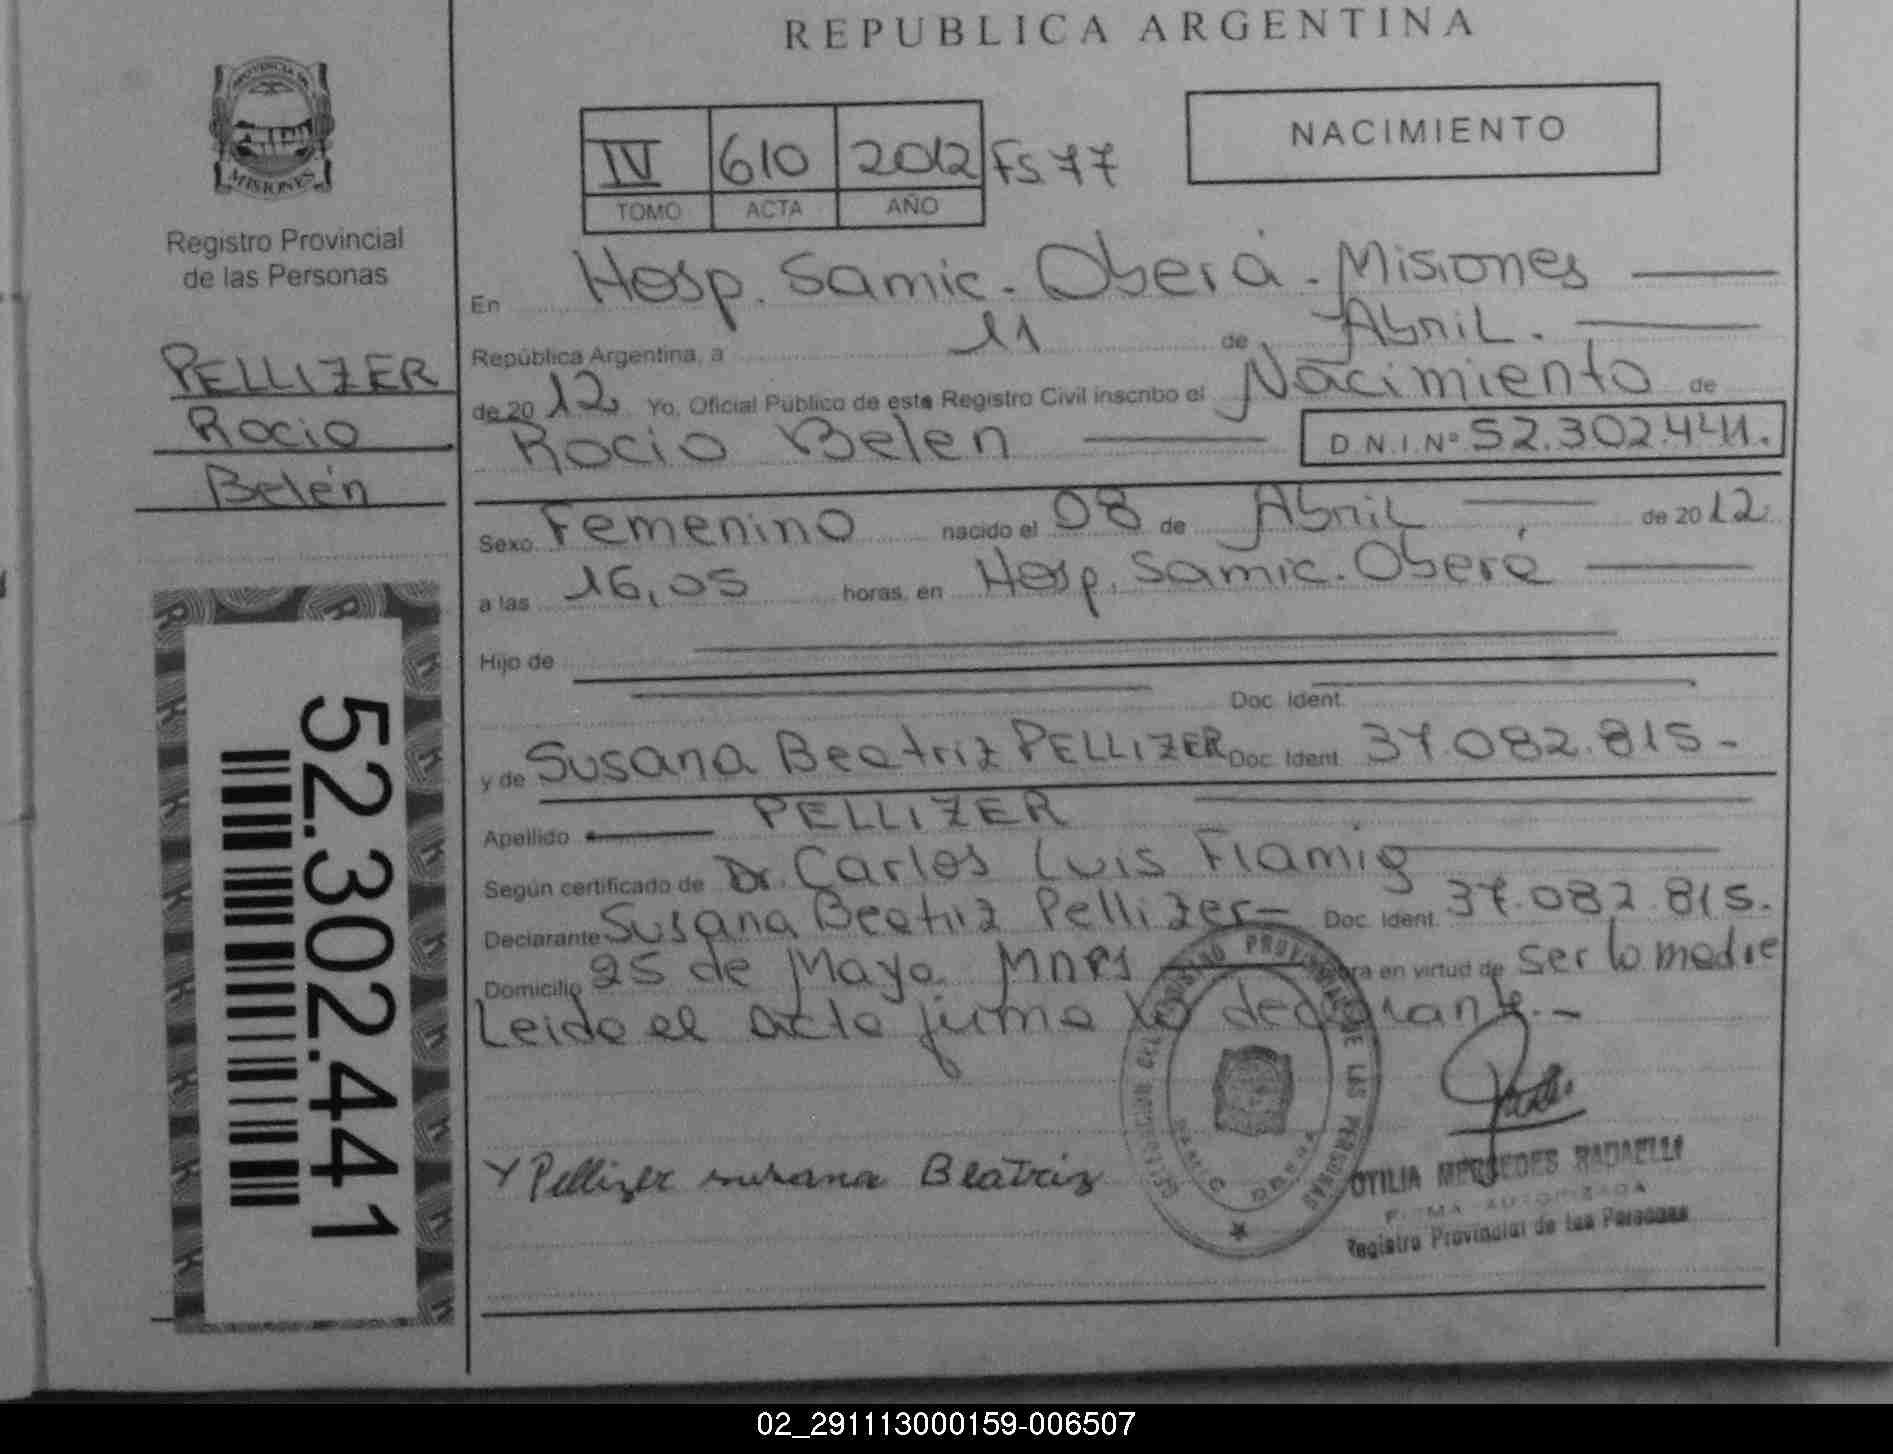 REPUBLICA ARGENTINA
PROVINCIA DE
MISIONES
Registro Provincial
de las Personas
PELLIZER
Rocio
Belén
52.302.441
IV 610 2012 Fs 77
TOMO ACTA AÑO
NACIMIENTO
En Hosp. Samic. Oberá. Misiones
República Argentina, a 11 de Abril.
de 2012 Yo, Oficial Público de este Registro Civil inscribo el Nacimiento de
Rocio Belen D.N.I.Nº 52.302.441.
Sexo Femenino nacido el 08 de Abril de 2012
a las 16,05 horas, en Hosp. Samic. Oberá
Hijo de
Doc. Ident.
y de Susana Beatriz PELLIZER Doc. Ident. 37.082.815.-
Apellido PELLIZER
Según certificado de Dr. Carlos Luis Flamig
Declarante Susana Beatriz Pellizer- Doc. Ident. 37.082.815.
Domicilio 25 de Mayo. Mnes en virtud de ser la madre
Leida el acta firma la declarante.-
Pellizer susana Beatriz
PROVINCIAL DE LAS PERSONAS
SAMIC OBERA
OTILIA MERCEDES RADAELLI
FIRMA AUTORIZADA
Registro Provincial de las Personas
02_291113000159-006507